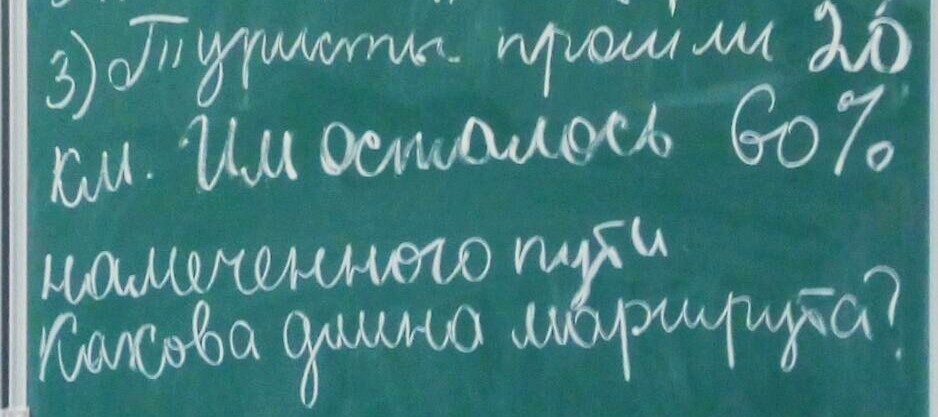 3) Туристы прошли 20
км. Им осталось 60%
намеченного пути
Какова длина маршрута?